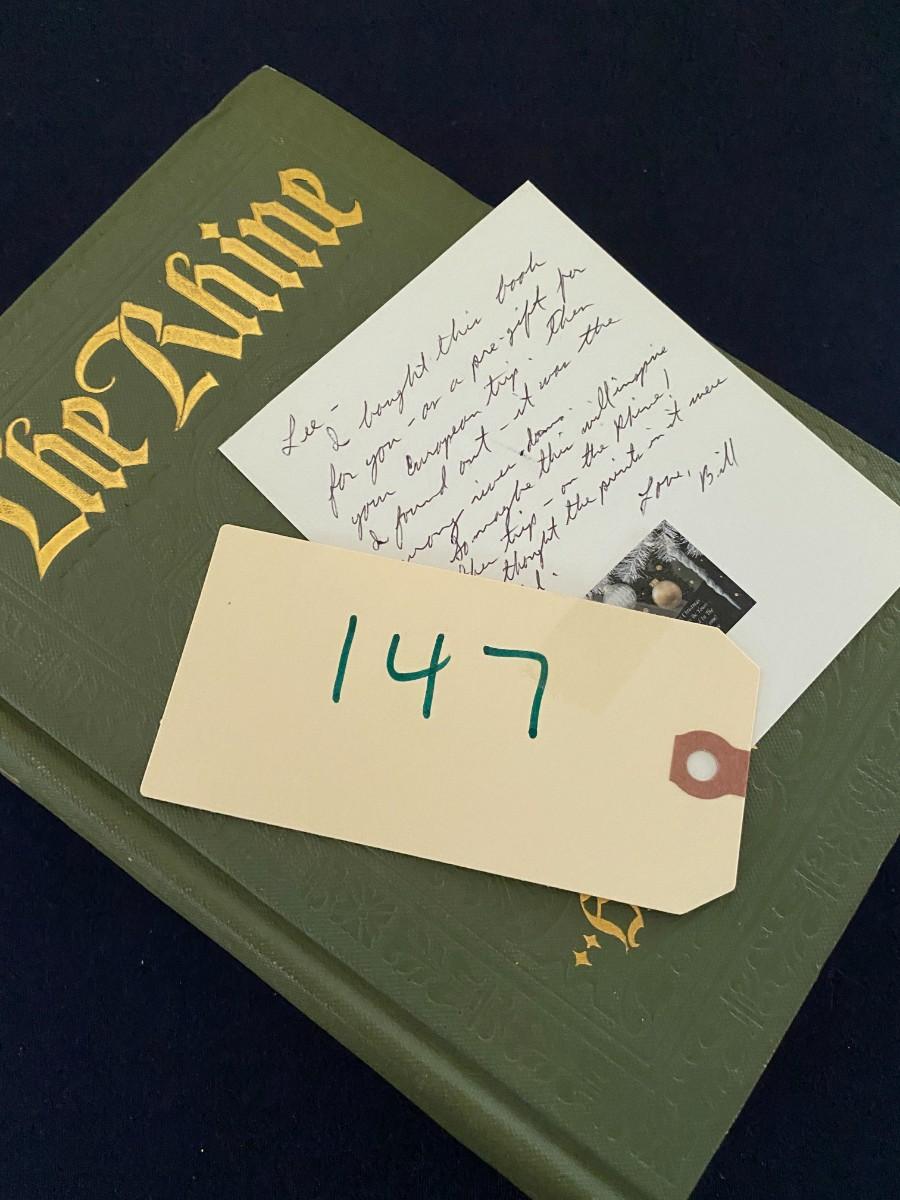 The Rhine
Lee -
I bought this book
for you - as a pre-gift for
your European trip. Then
I found out - it was the
wrong river. damn.
So maybe this will inspire
trip - on the Rhine!
thought the prints in it were
Love,
Bill
147